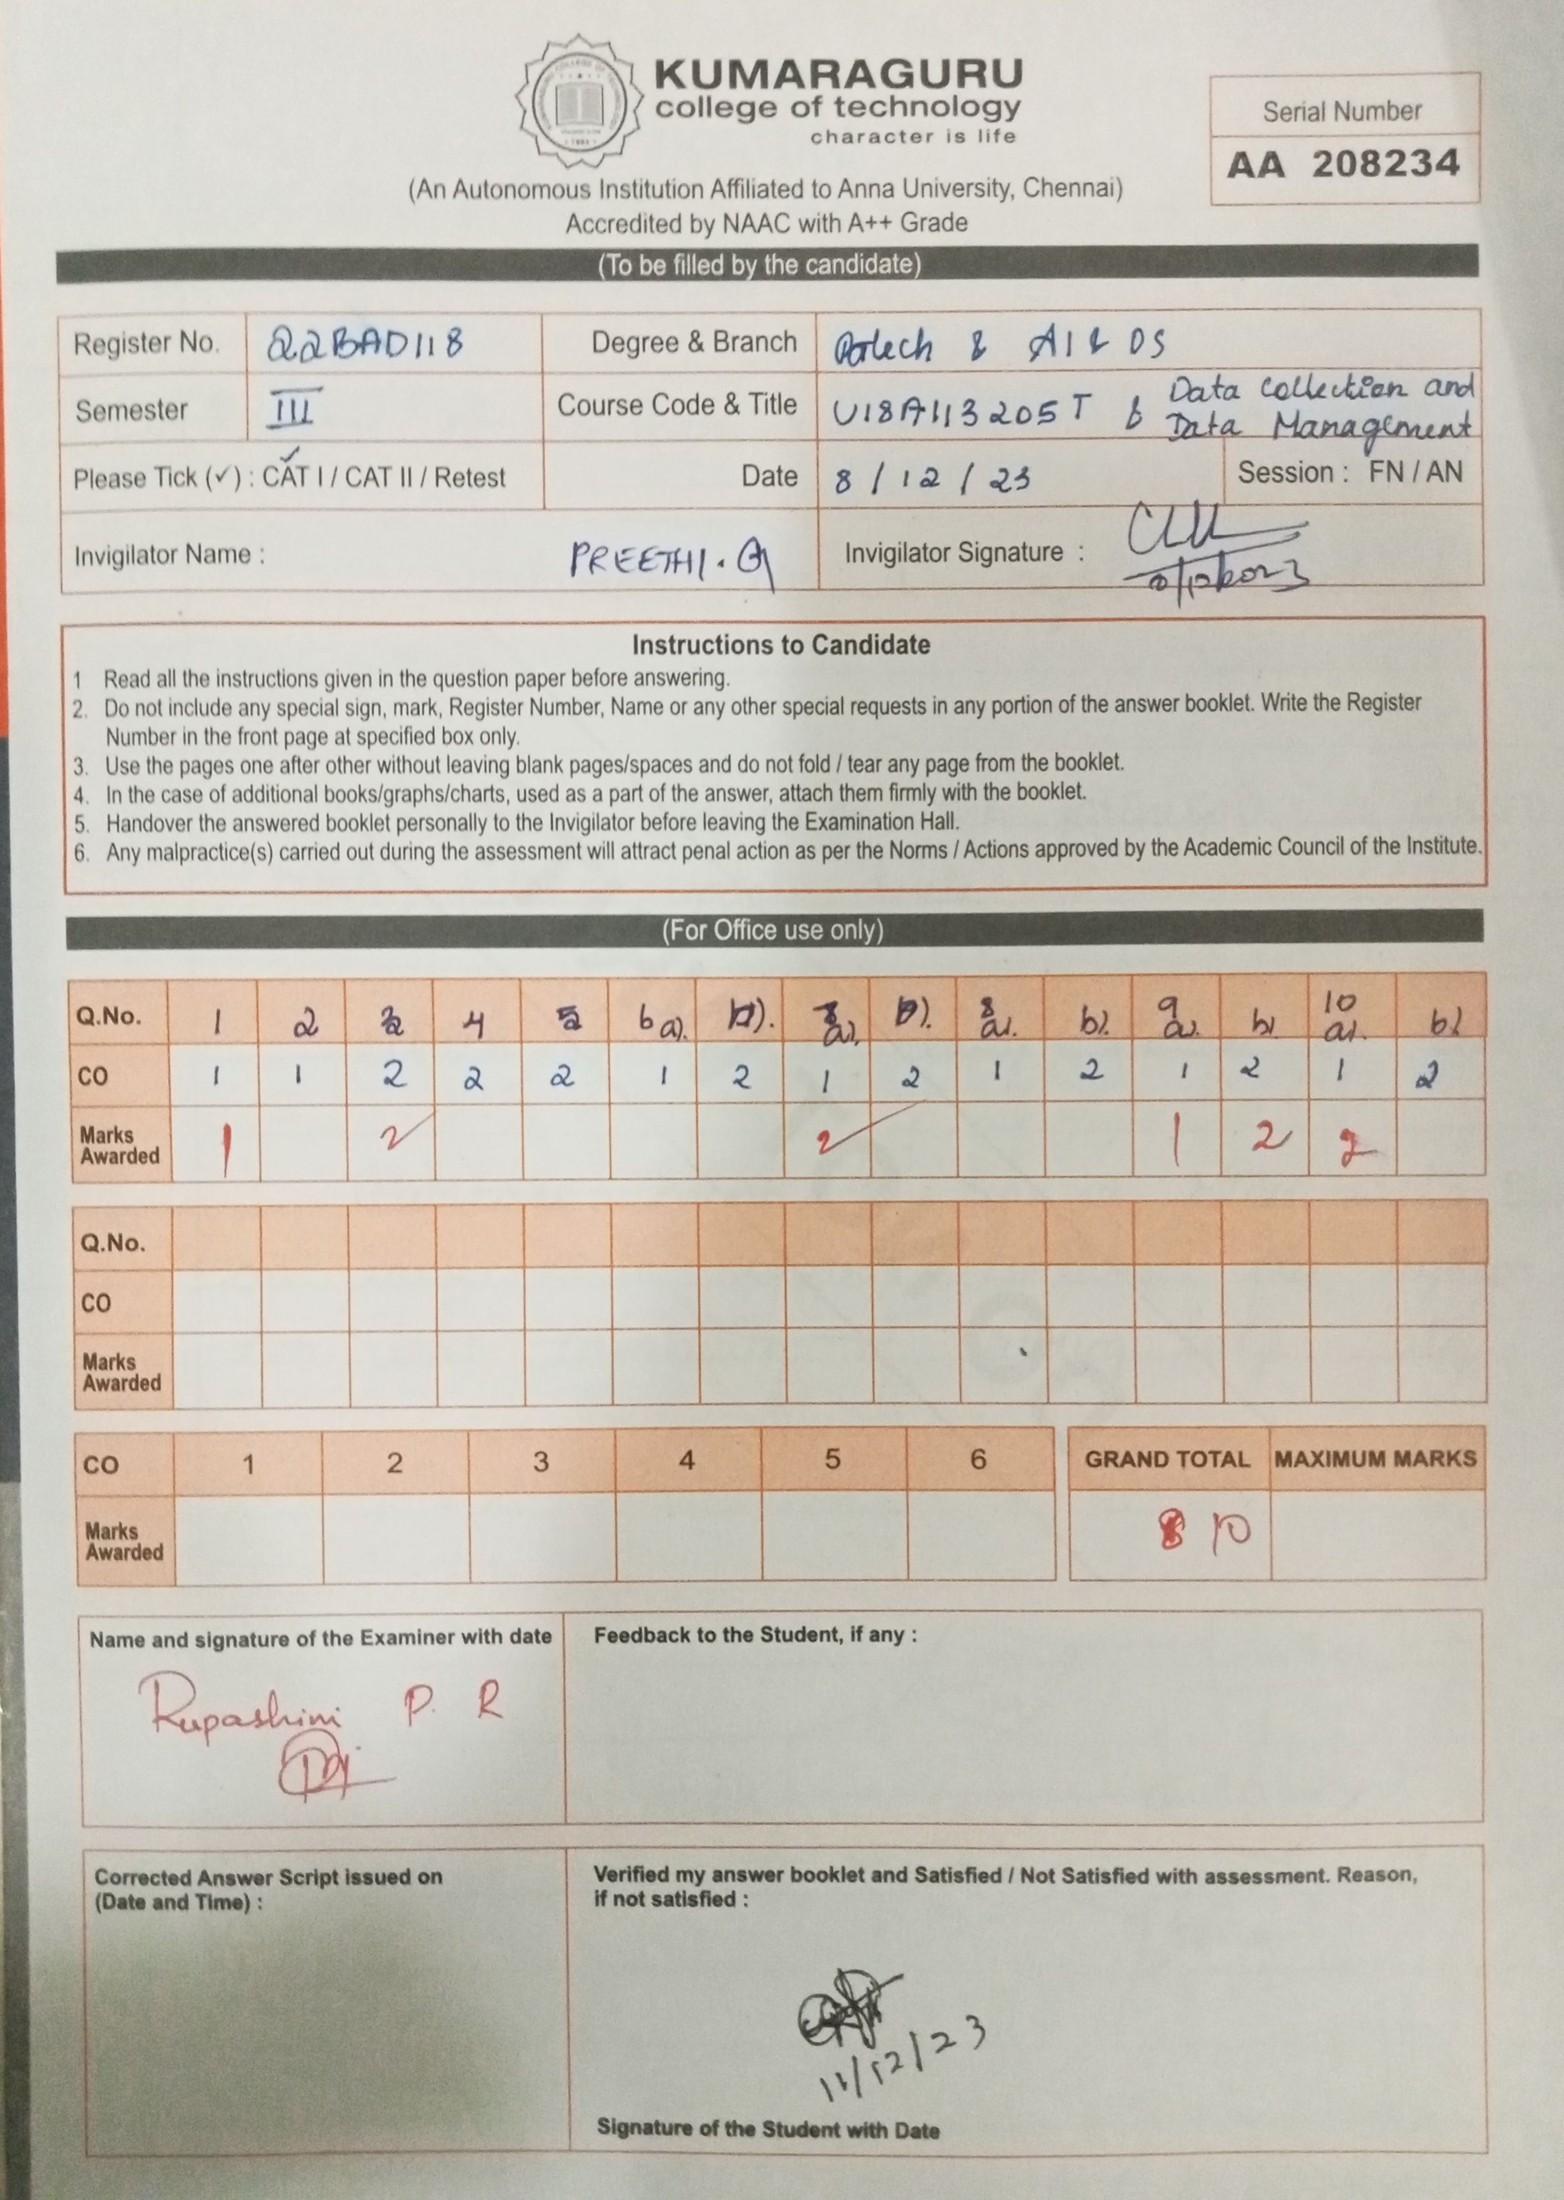 KUMARAGURU
college of technology
character is life
Serial Number
AA 208234
(An Autonomous Institution Affiliated to Anna University, Chennai)
Accredited by NAAC with A++ Grade
(To be filled by the candidate)
Register No. 22BAD118 Degree & Branch & AI & DS
Semester III Course Code & Title U18AI13205T & Data Collection and
Data Management
Please Tick (✓) : CAT I / CAT II / Retest Date 8 / 12 / 23 Session : FN / AN
Invigilator Name : PREETHI. G Invigilator Signature :
Instructions to Candidate
1 Read all the instructions given in the question paper before answering.
2. Do not include any special sign, mark, Register Number, Name or any other special requests in any portion of the answer booklet. Write the Register
Number in the front page at specified box only.
3. Use the pages one after other without leaving blank pages/spaces and do not fold / tear any page from the booklet.
4. In the case of additional books/graphs/charts, used as a part of the answer, attach them firmly with the booklet.
5. Handover the answered booklet personally to the Invigilator before leaving the Examination Hall.
6. Any malpractice(s) carried out during the assessment will attract penal action as per the Norms / Actions approved by the Academic Council of the Institute.
(For Office use only)
Q.No. 1 2 3 4 5 6 a). b). 7 a). b). 8 a). b). 9 a). b) 10 a). b)
CO 1 1 2 2 2 1 2 1 2 1 2 1 2 1 2
Marks Awarded 1 2 2 1 2 2
Q.No.
CO
Marks
Awarded
CO 1 2 3 4 5 6 GRAND TOTAL MAXIMUM MARKS
Marks Awarded 10
Name and signature of the Examiner with date Feedback to the Student, if any :
Rupashini P. R
Corrected Answer Script issued on
(Date and Time) :
Verified my answer booklet and Satisfied / Not Satisfied with assessment. Reason,
if not satisfied :
11/12/23
Signature of the Student with Date